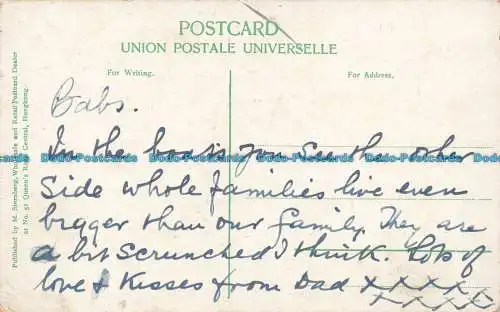 POSTCARD
UNION POSTALE UNIVERSELLE
For Writing.
For Address.
Babs.
In the boats you see the other
side whole families live even
bigger than our family. They are
a bit scrunched I think. Lots of
love & kisses from Dad xxxxx
xxxx
Published by M. Sternberg, Wholesale and Retail Postcard Dealer
at No. 51 Queen's Road Central, Hongkong.
Dado-Postcards Dado-Postcards Dado-Postcards Dado-Postcards